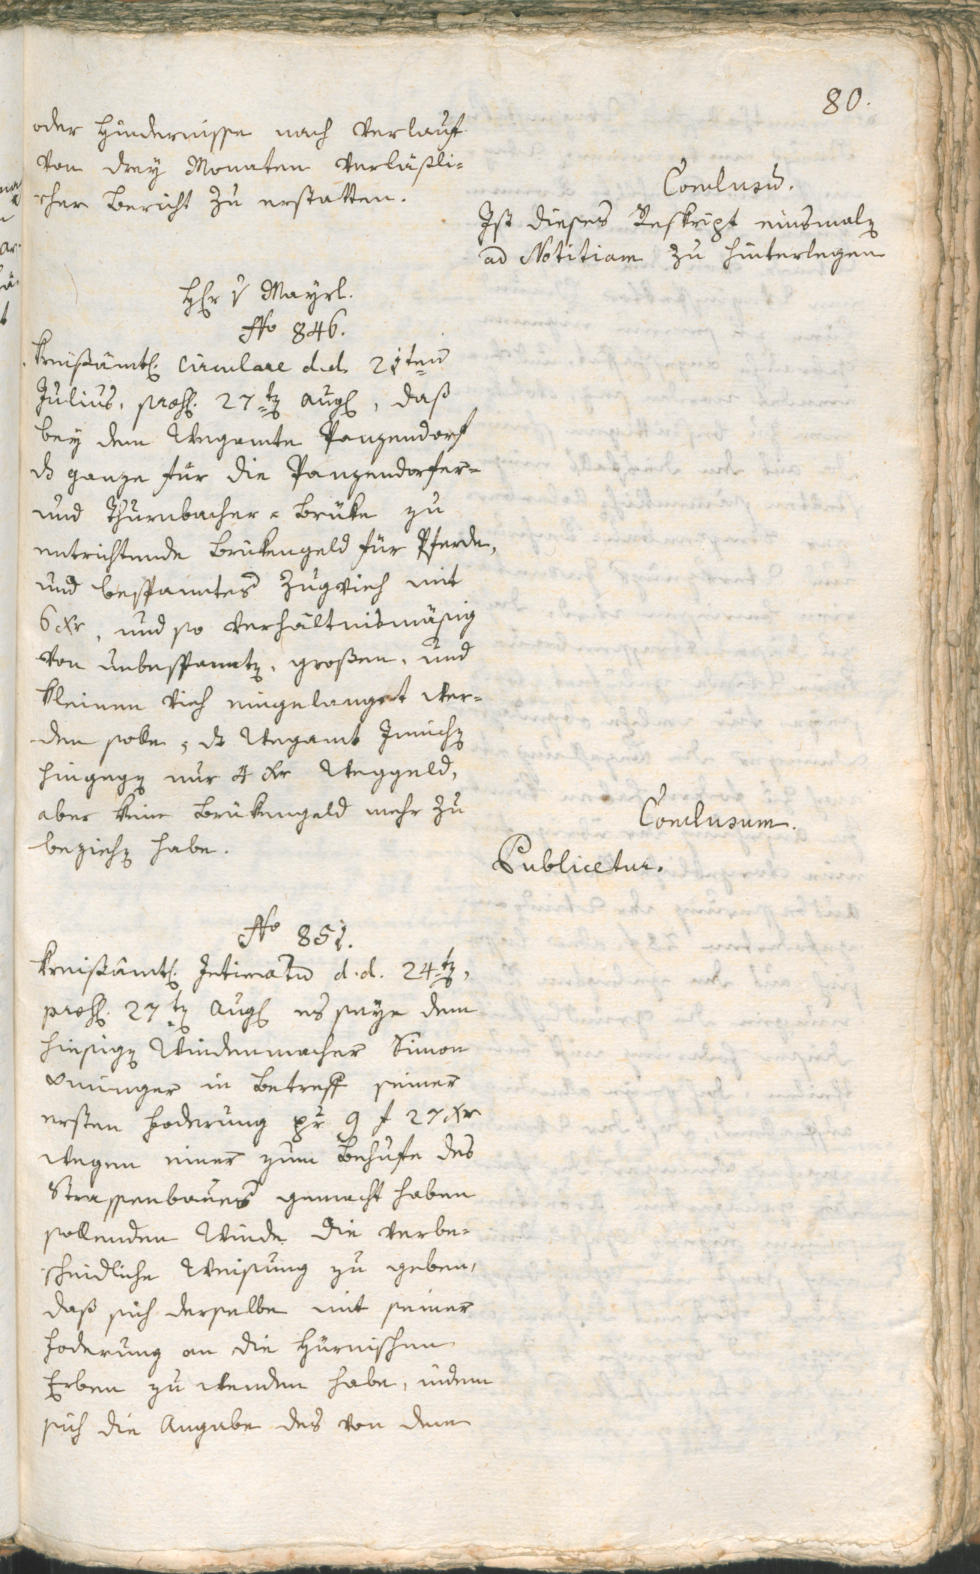 80.
oder Hindernisse nach Verlauf
von drey Monaten verläßli-
cher Bericht zu erstatten.
Conclusū.
Ist dieses Reskript einsmalen
ad Notitiam zu hinterlegen
H. v Mayrl.
No 846.
Kreißämtl. Circulare d.d. 21ten
Julius, præs. 27ten Aug, daß
bey dem Wegamte Panzendorf
ds ganze für die Panzendorfer-
und Thurnbacher-Brüke zu
entrichtende Brükengeld für Pferde,
und bespanntes Zugvieh mit
6 Xr, und so verhältnismäsig
von unbespannten, großen, und
kleinen Vieh eingelanget wer-
den solle, ds Wegamt Innichen
hingegen nur 4 Xr Weggeld,
aber keine Brükengeld mehr zu
beziehen habe.
Conclusum.
Publicetur.
No 851.
Kreißämtl. Intimatū d.d. 24ten,
præs. 27ten Aug es seye dem
hiesigen Windenmacher Simon
in Betreff seiner
ersten Foderung pr 9 f 27 Xr
wegen einer zum Behufe des
Strassenbaues gemacht haben
sollenden Winde die verbe-
scheidliche Weisung zu geben,
daß sich derselbe mit seiner
Foderung an die Hürnischen
Erben zu wenden habe, indem
sich die Angabe des von dem